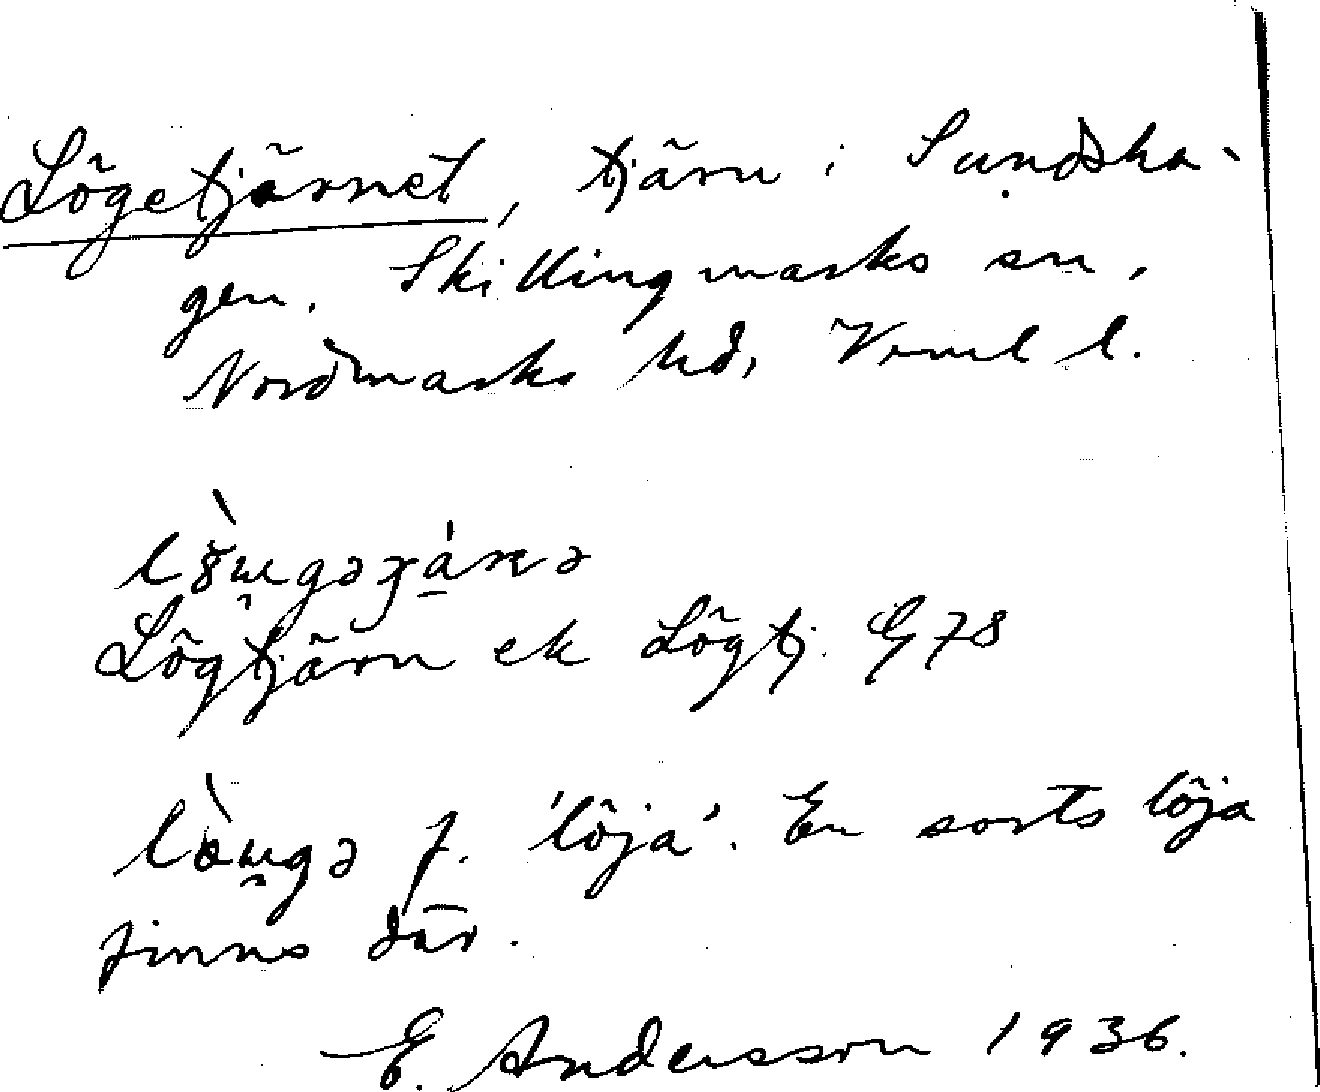 Lögetjärnet, tjärn i Sundska-
gen. Skillingmarks sn,
Nordmarks hd, Vrml l.
Lögtjärn ek Lögtj. G78
f. 'löja'. En sorts löja
finns där.
E. Andersson 1936.